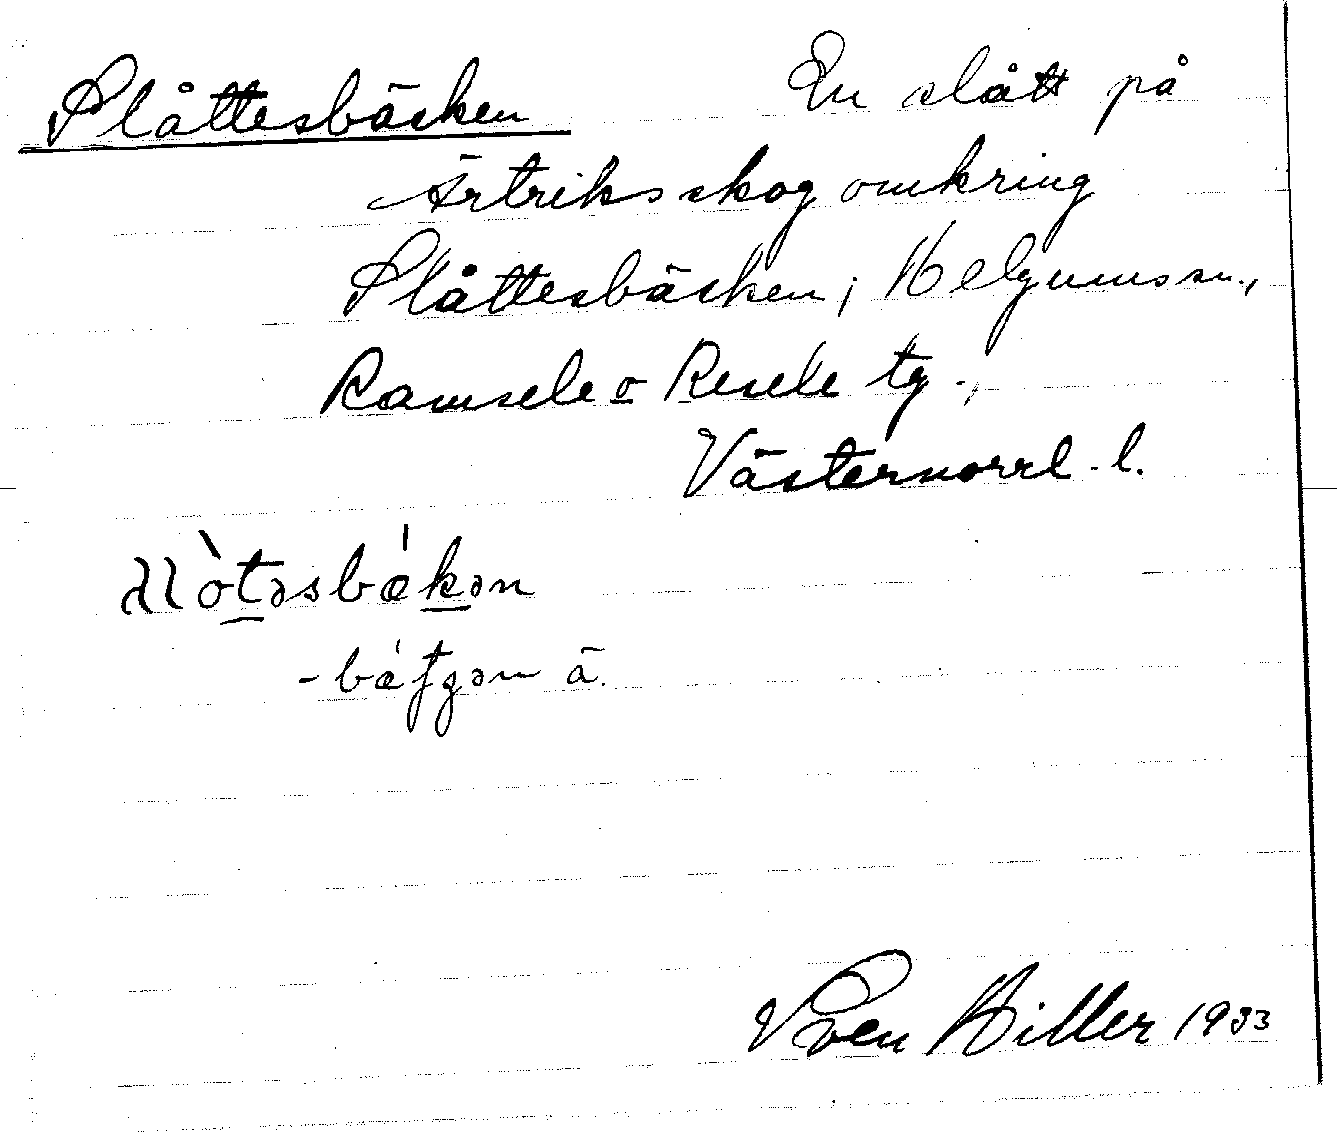 Slåttesbäcken En slått på
Ärtriks skog omkring
Slåttesbäcken; Helgums sn.,
Ramsele o Resele tg.,
Västernorrl. l.
-bæ̀ʃgən ä.
Sven Hiller 1933